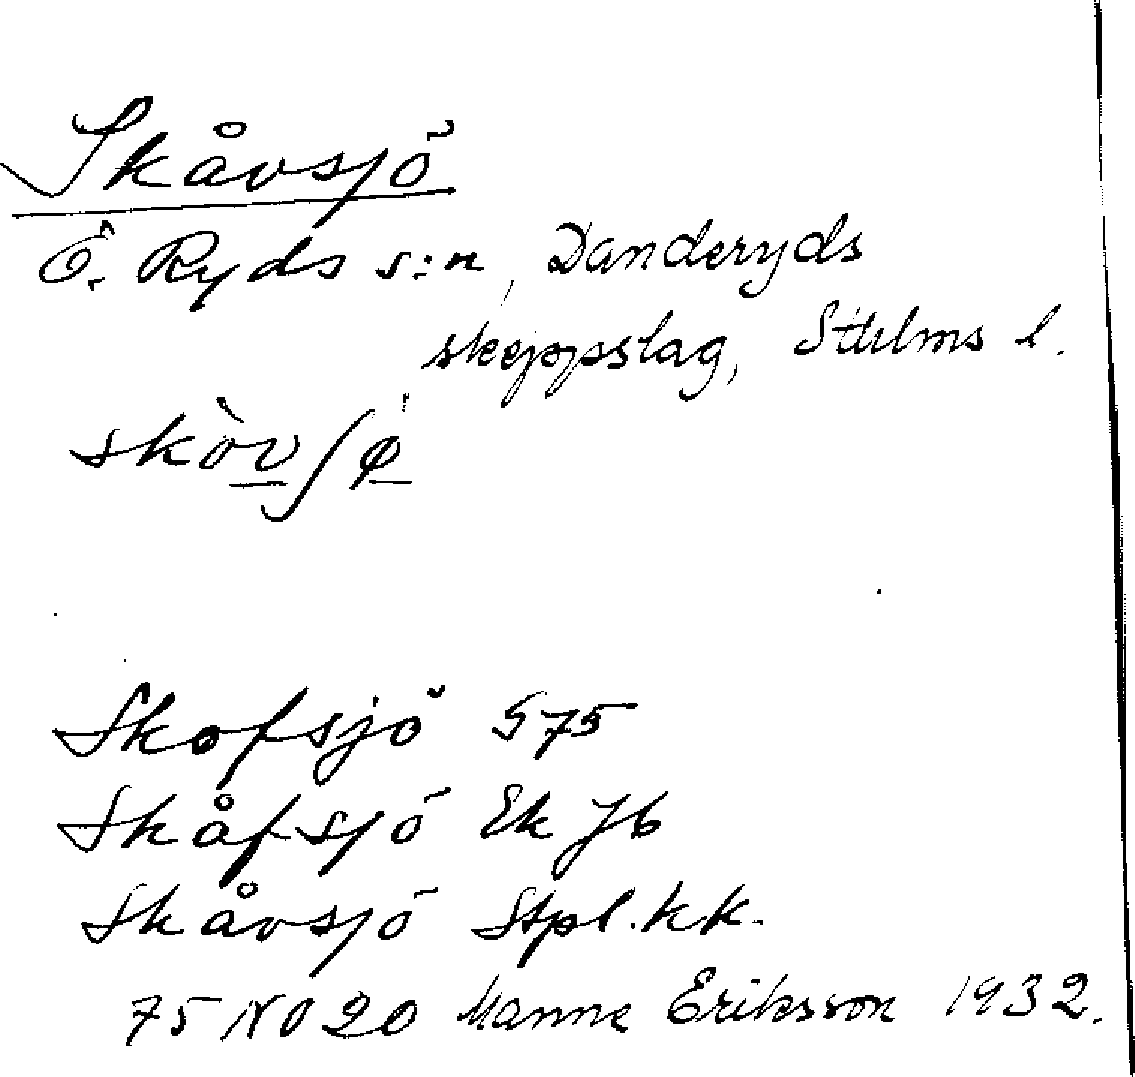 Skåvsjö
Ö. Ryds s:n, Danderyds
skeppslag, Sthlms l.
skòvʃø
Skofsjö G 75
Skåfsjö Ek Jb
Skåvsjö Stpl. kk.
75 NO 20 Manne Eriksson 1932.